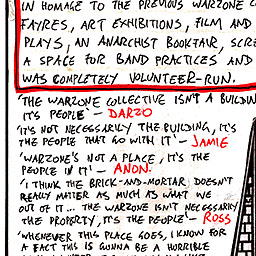 IN HOMAGE TO THE PREVIOUS WARZONE C
FAYRES, ART EXHIBITIONS, FILM AND
PLAYS, AN ANARCHIST BOOKFAIR, SCRE
A SPACE FOR BAND PRACTICES AND
WAS COMPLETELY VOLUNTEER-RUN.
'THE WARZONE COLLECTIVE ISN'T A BUILDIN
IT'S PEOPLE' - DARZO
'IT'S NOT NECESSARILY THE BUILDING, IT'S
THE PEOPLE THAT GO WITH IT' - JAMIE
'WARZONE'S NOT A PLACE, IT'S THE
PEOPLE IN IT' - ANON.
'I THINK THE BRICK-AND-MORTAR DOESN'T
REALLY MATTER AS MUCH AS WHAT WE
OUT OF IT... THE WARZONE ISN'T NECESSARILY
THE PROPERTY, IT'S THE PEOPLE' - ROSS
'WHENEVER THIS PLACE GOES, I KNOW FOR
A FACT THIS IS GONNA BE A HORRIBLE